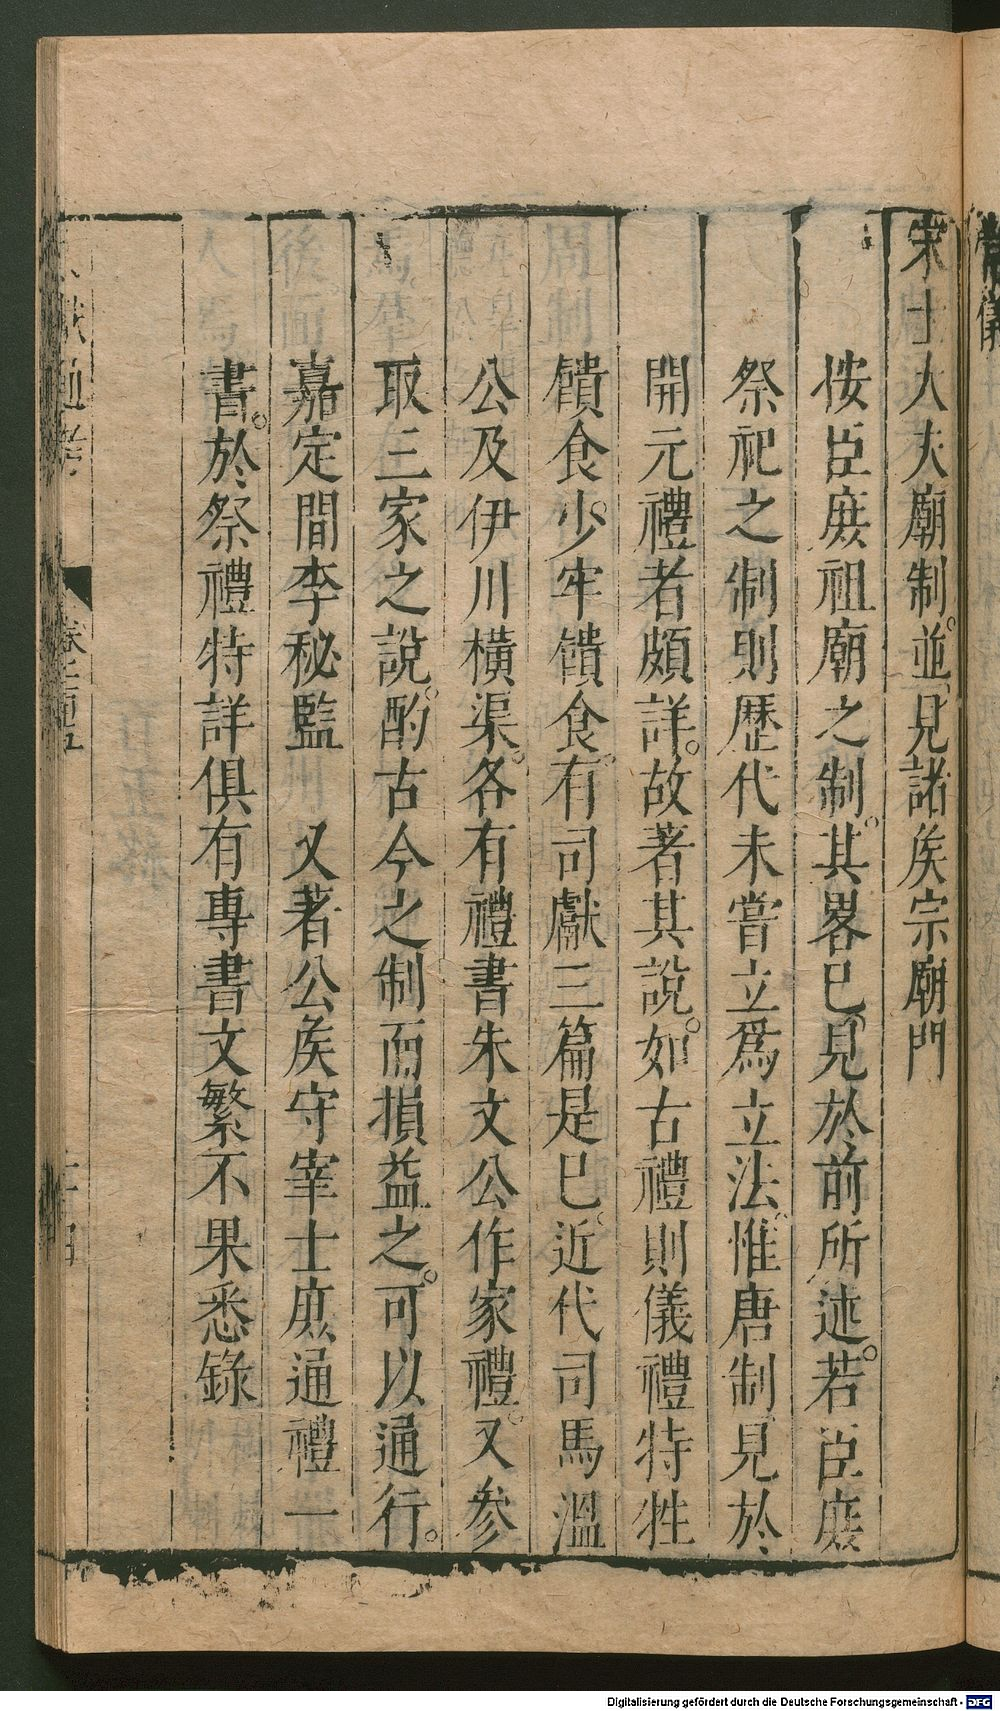 宋士大夫廟制並見諸矦宗廟門
按臣庶祖廟之制其畧巳見於前所述若臣庶
祭祀之制則歷代未嘗立爲立法惟唐制見於
開元禮者頗詳故著其說如古禮則儀禮特牲
饋食少牢饋食有司獻三篇是巳近代司馬溫
公及伊川橫渠各有禮書朱文公作家禮又參
取三家之說酌古今之制而損益之可以通行
嘉定間李秘監　又著公矦守宰士庶通禮一
書於祭禮特詳俱有專書文繁不果悉錄
獻通考
卷
Digitalisierung gefördert durch die Deutsche Forschungsgemeinschaft - DFG